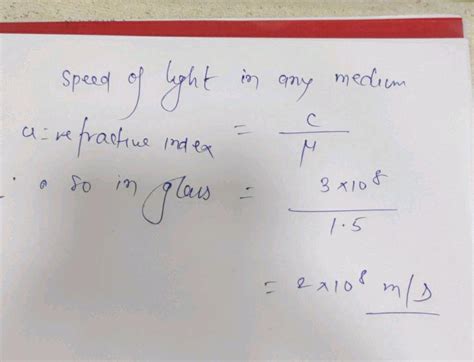 speed of light in any medium
u = refractive index = C / μ
∴ so in glass = 3 × 10⁸ / 1.5
= 2 × 10⁸ m/s